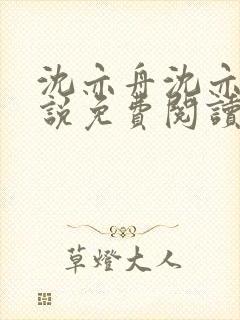 沈亦舟沈亦
說免費閱讀
草燈大人